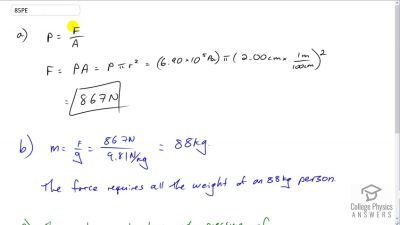 85PE
a) P = F/A
F = PA = Pπr² = (6.90×10⁵ Pa) π (2.00cm × 1m/100cm)²
= 867N
b) m = F/g = 867N / 9.81N/kg = 88kg.
The force requires all the weight of an 88kg person.
College Physics
ANSWERS